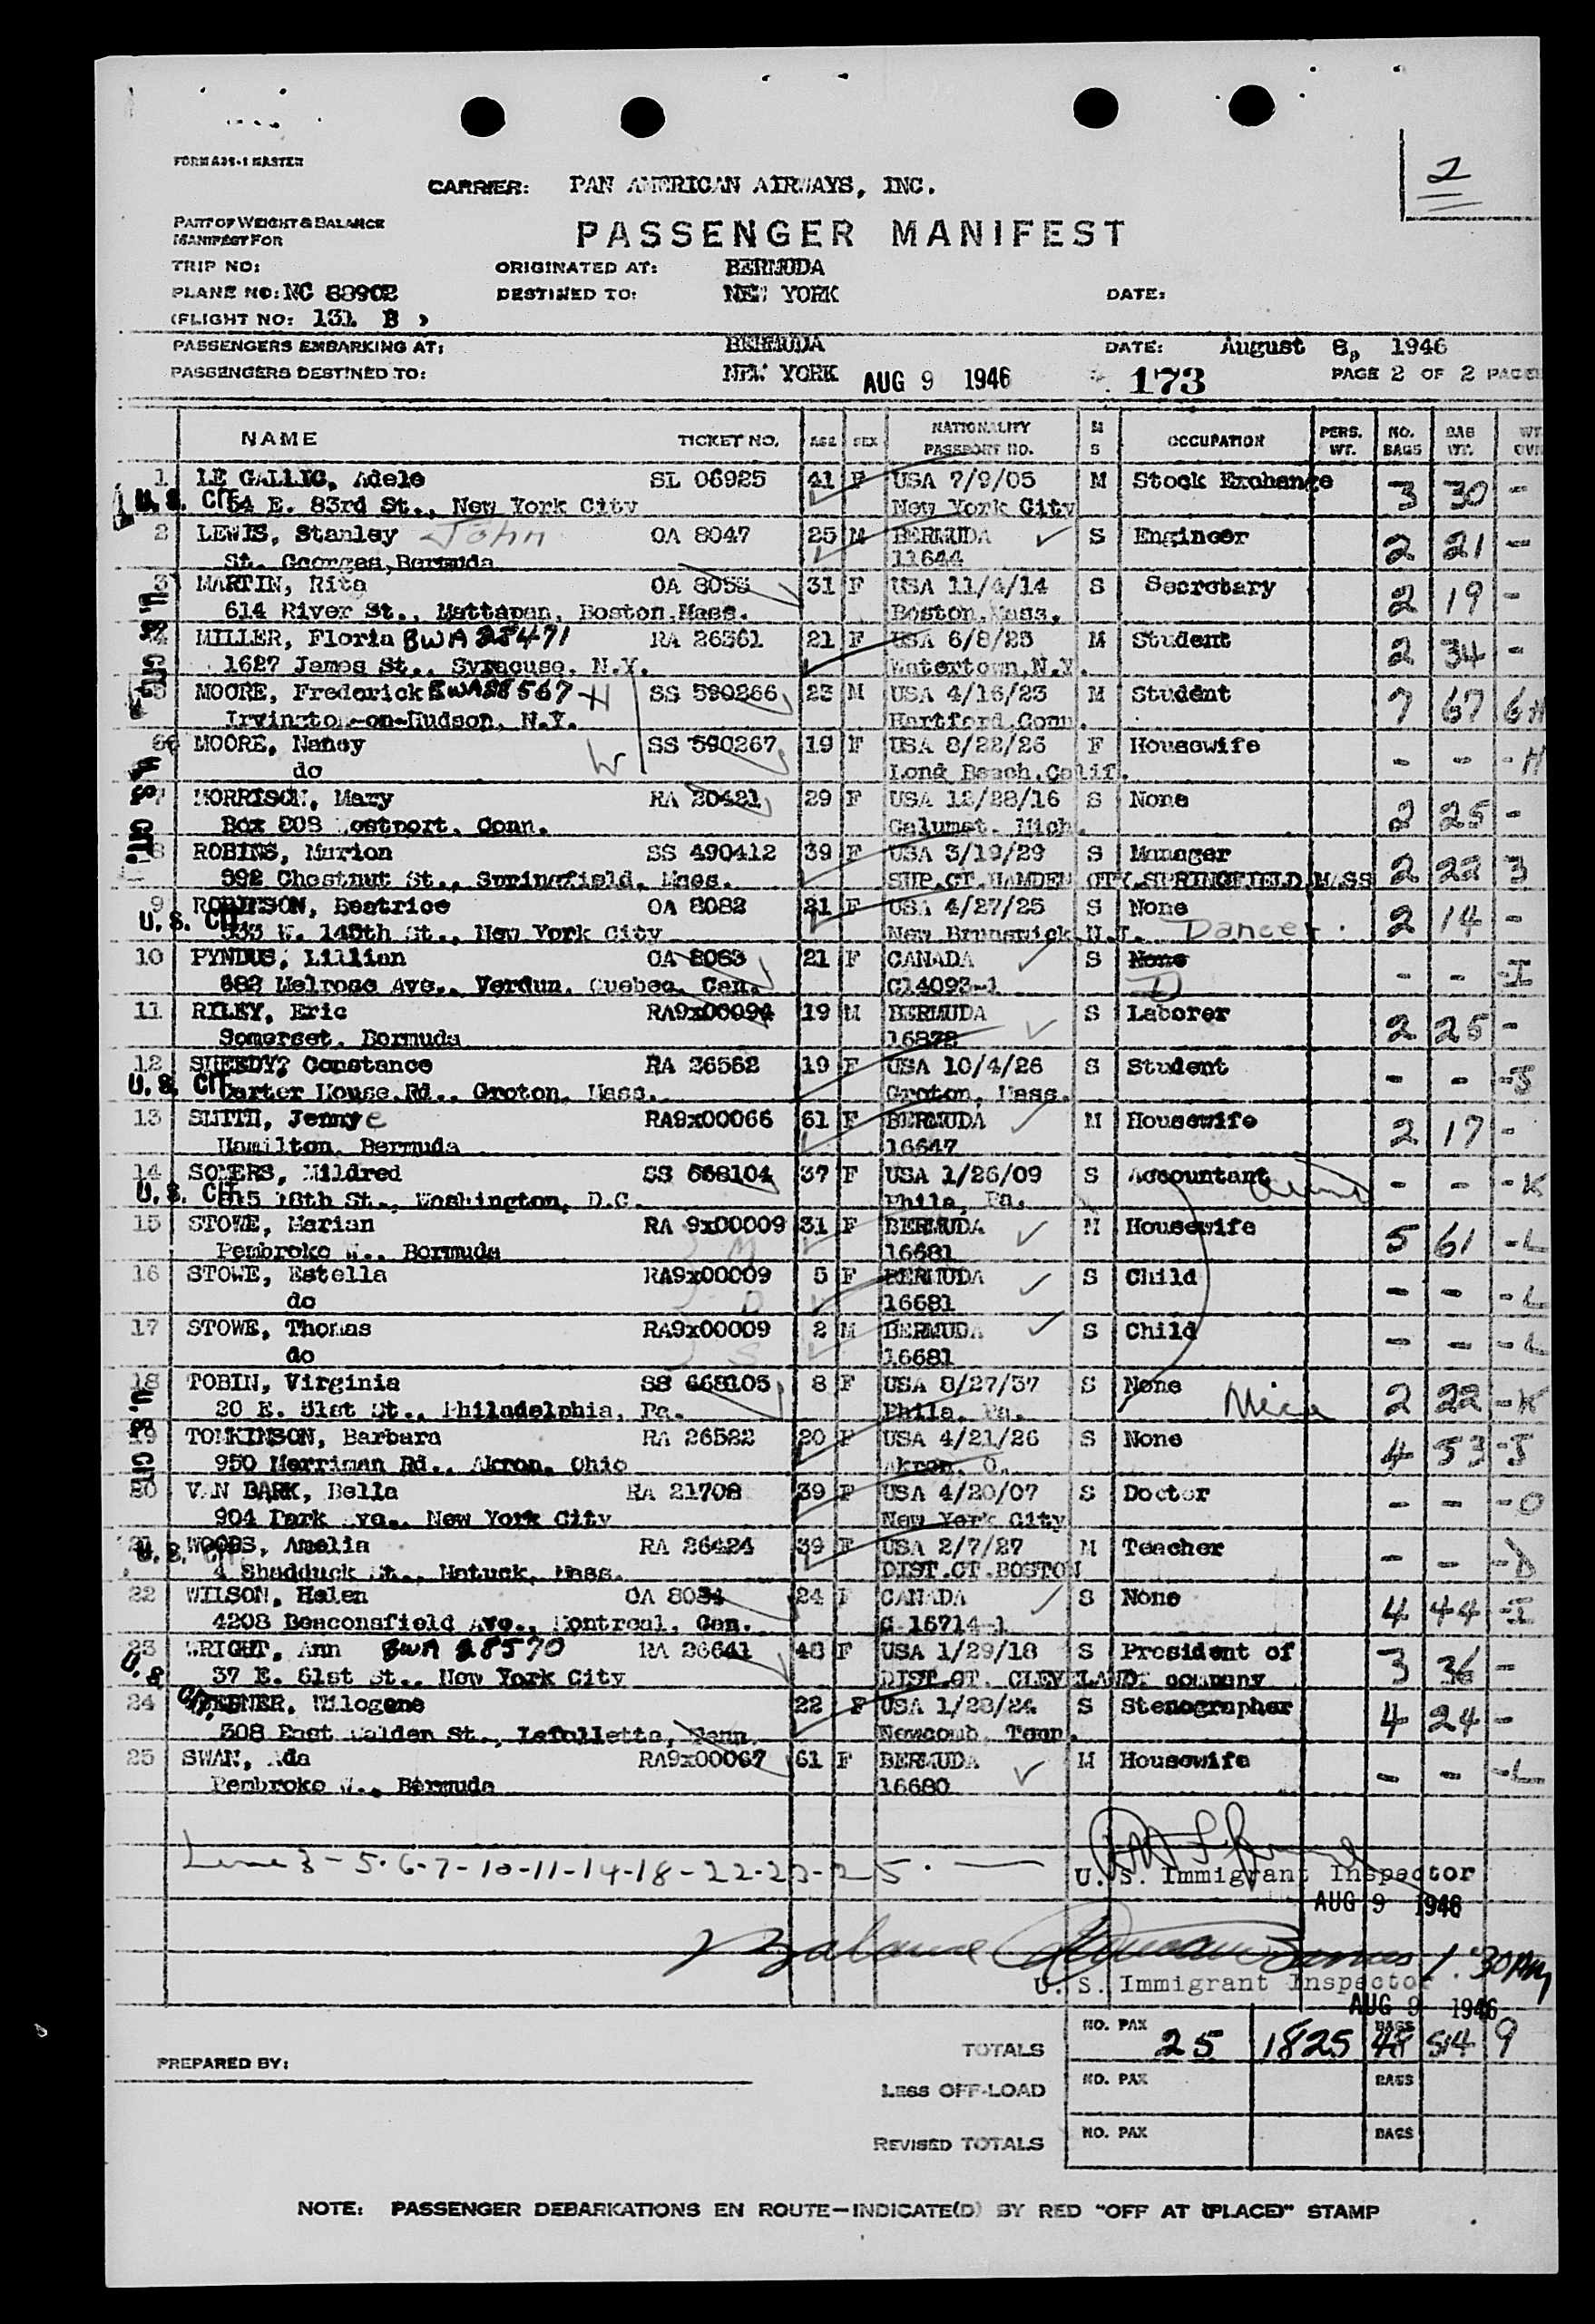 2
FORM A35-1 MASTER
CARRIER: PAN AMERICAN AIRWAYS, INC.
PART OF WEIGHT & BALANCE
MANIFEST FOR
PASSENGER MANIFEST
TRIP NO: ORIGINATED AT: BERMUDA
PLANE NO: NC 88902 DESTINED TO: NEW YORK DATE:
(FLIGHT NO: 131 B )
PASSENGERS EMBARKING AT: BERMUDA DATE: August 8, 1946
PASSENGERS DESTINED TO: NEW YORK AUG 9 1946 173 PAGE 2 OF 2 PAGES
NAME TICKET NO. AGE SEX NATIONALITY PASSPORT NO. M S OCCUPATION PERS. WT. NO. BAGS BAG WT. WT. OVR
1 LE GALLIC, Adele SL 06925 41 F USA 7/9/05 M Stock Exchange 3 30 -
U. S. CIT. 54 E. 83rd St., New York City New York City
2 LEWIS, Stanley John OA 8047 25 M BERMUDA S Engineer 2 21 -
St. Georges, Bermuda 11644
3 MARTIN, Rita OA 8053 31 F USA 11/4/14 S Secretary 2 19 -
614 River St., Mattapan, Boston, Mass. Boston, Mass.
U. S. CIT.
4 MILLER, Floria BWA 28471 RA 26561 21 F USA 6/8/25 M Student 2 34 -
1627 James St., Syracuse, N.Y. Watertown, N.Y.
5 MOORE, Frederick BWA 28567 H SS 590266 23 M USA 4/16/23 M Student 7 67 6H
Irvington-on-Hudson, N.Y. Hartford, Conn.
6 MOORE, Nancy W SS 590267 19 F USA 8/22/26 F Housewife - - -H
do Long Beach, Calif.
U. S. CIT.
7 MORRISON, Mary RA 20421 29 F USA 12/28/16 S None 2 25 -
Box 808 Westport, Conn. Calumet, Mich.
8 ROBINS, Marion SS 490412 39 F USA 3/19/29 S Manager 2 22 3
592 Chestnut St., Springfield, Mass. SUP.CT.HAMDEN CTY.SPRINGFIELD,MASS
9 ROBINSON, Beatrice OA 8082 21 F USA 4/27/25 S None 2 14 -
U. S. CIT. 333 W. 145th St., New York City New Brunswick, N.J. Dancer.
10 PYNDUS, Lillian OA 8063 21 F CANADA S None - - -I
682 Melrose Ave., Verdun, Quebec, Can. C14093-1 D
11 RILEY, Eric RA9x00094 19 M BERMUDA S Laborer 2 25 -
Somerset, Bermuda 16872
12 SHEEDY? Constance RA 26562 19 F USA 10/4/26 S Student - - -J
U. S. CIT. Carter House Rd., Groton, Mass. Groton, Mass.
13 SMITH, Jennye RA9x00066 61 F BERMUDA M Housewife 2 17 -
Hamilton, Bermuda 16647
14 SOMERS, Mildred SS 668104 37 F USA 1/26/09 S Accountant - - -K
U. S. CIT. 815 18th St., Washington, D.C. Phila, Pa.
15 STOWE, Marian RA 9x00009 31 F BERMUDA M Housewife 5 61 -L
Pembroke W., Bermuda M 16681
16 STOWE, Estella RA9x00009 5 F BERMUDA S Child - - -L
do D 16681
17 STOWE, Thomas RA9x00009 2 M BERMUDA S Child - - -L
do S 16681
18 TOBIN, Virginia SS 668105 8 F USA 8/27/37 S None Niece 2 22 -K
20 E. 51st St., Philadelphia, Pa. Phila. Pa.
U. S. CIT.
19 TOMKINSON, Barbara RA 26522 20 F USA 4/21/26 S None 4 53 -J
950 Merriman Rd., Akron, Ohio Akron, O.
20 VAN DARK, Bella RA 21708 39 F USA 4/20/07 S Doctor - - -O
904 Park Ave., New York City New York City
21 WOODS, Amelia RA 26424 39 F USA 2/7/27 M Teacher - - -D
U. S. CIT. 4 Shadduck St., Natuck, Mass. DIST.CT.BOSTON
22 WILSON, Helen OA 8034 24 F CANADA S None 4 44 -I
4208 Beaconsfield Ave., Montreal, Can. C-15714-1
23 WRIGHT, Ann BWA 28570 RA 26641 48 F USA 1/29/18 S President of 3 36 -
37 E. 61st St., New York City DIST.CT. CLEVELAND company
U. S. CIT.
24 Wilogene 22 F USA 1/28/24 S Stenographer 4 24 -
308 East Walden St., Lafollette, Tenn. Newcomb, Tenn.
25 SWAN, Ada RA9x00067 61 F BERMUDA M Housewife - - -L
Pembroke W., Bermuda 16680
Line 3-5-6-7-10-11-14-18-22-23-25.
U. S. Immigrant Inspector
AUG 9 1946
Balance 1:30 PM
U. S. Immigrant Inspector
AUG 9 1946
TOTALS NO. PAX 25 1825 BAGS 48 514 9
PREPARED BY:
LESS OFF-LOAD NO. PAX BAGS
REVISED TOTALS NO. PAX BAGS
NOTE: PASSENGER DEBARKATIONS EN ROUTE—INDICATE(D) BY RED "OFF AT (PLACE)" STAMP